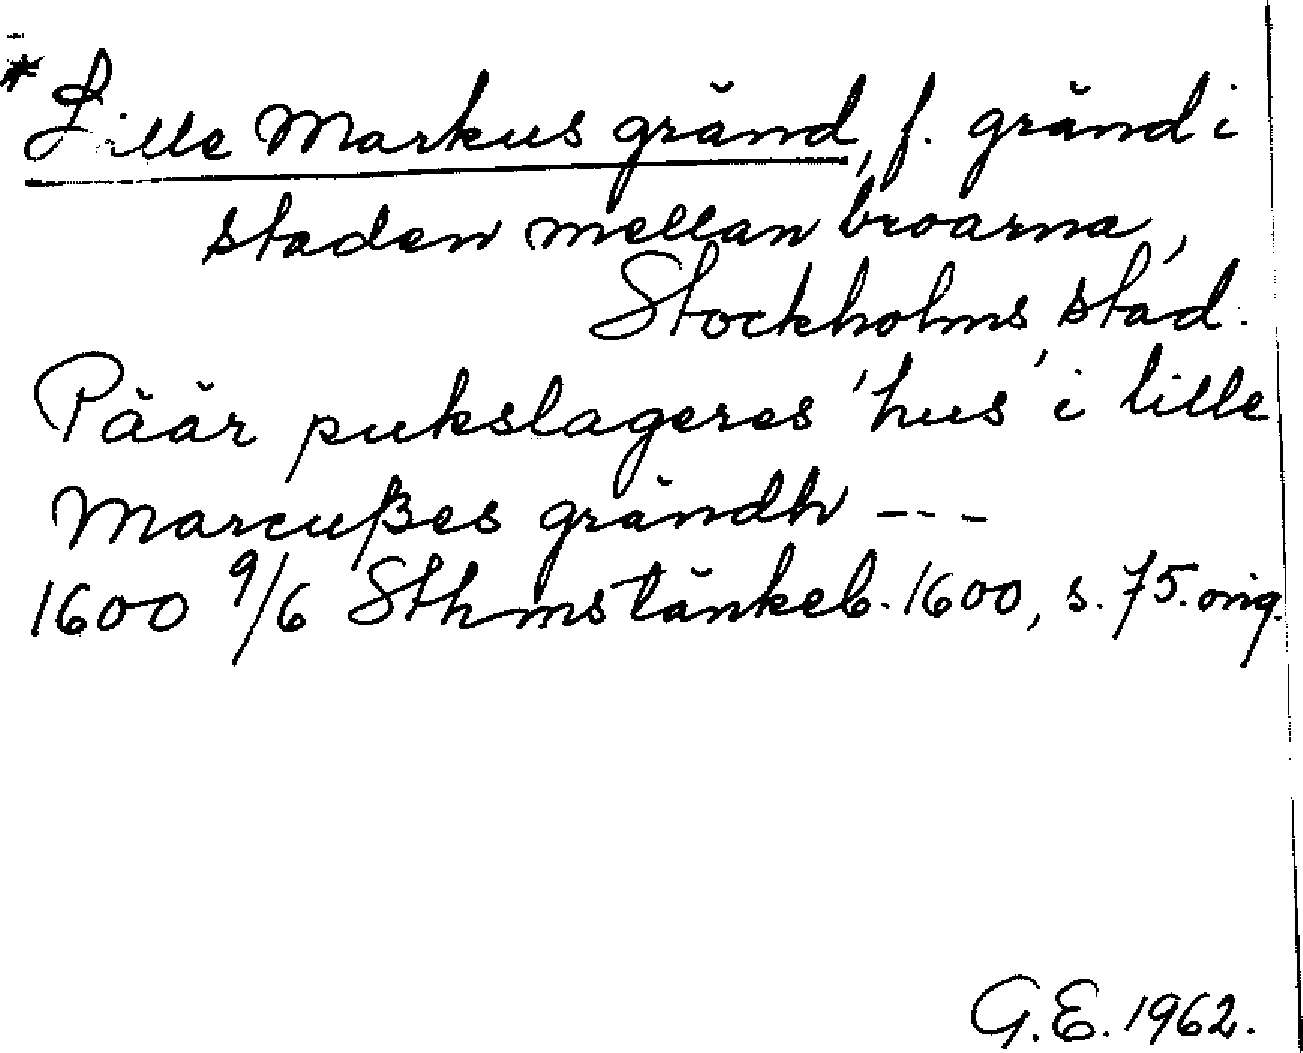 * Lille Markus gränd, f. gränd i
staden mellan broarna,
Stockholms stad.
Päär pukslageres 'hus' i lille
Marcußes grändh ---
1600 9/6 Sthms tänkeb. 1600, s. 75. orig.
G.E. 1962.